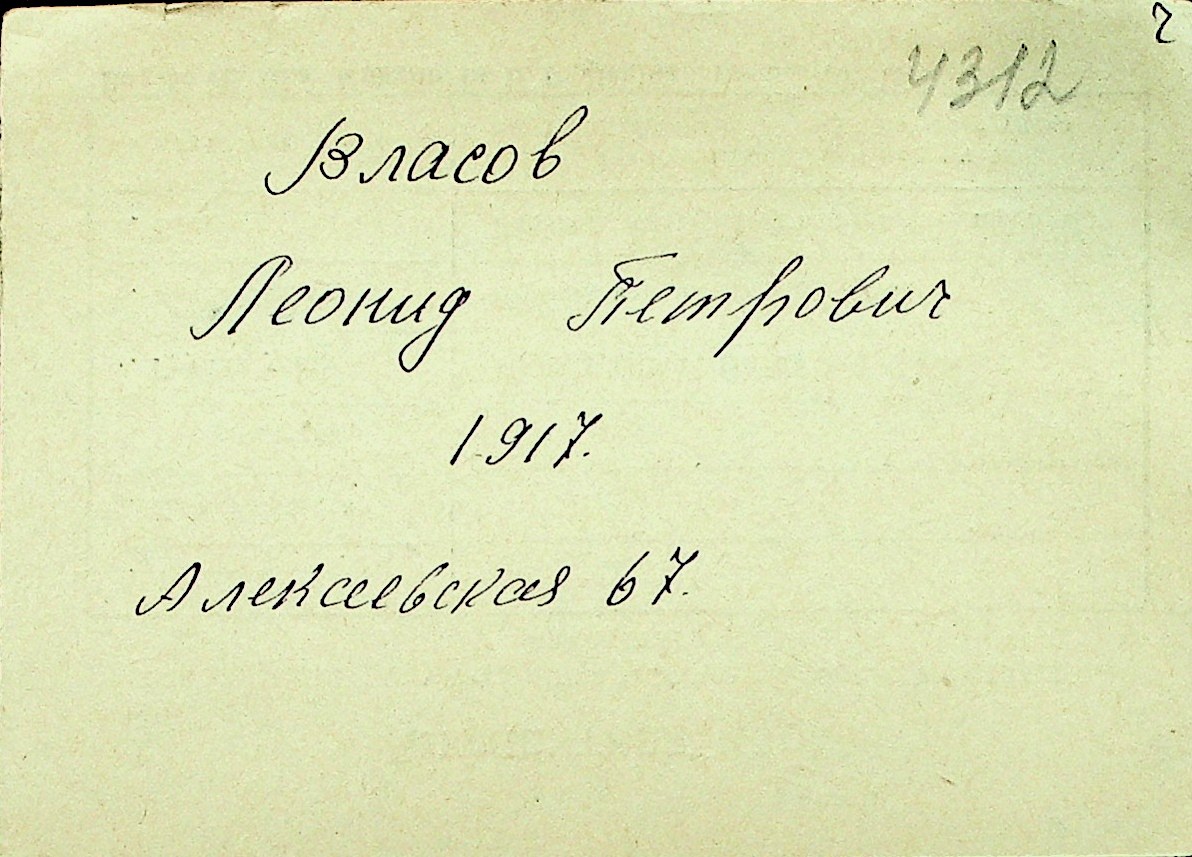 4312
Власов
Леонид Петрович
1917.
Алексеевская 67.